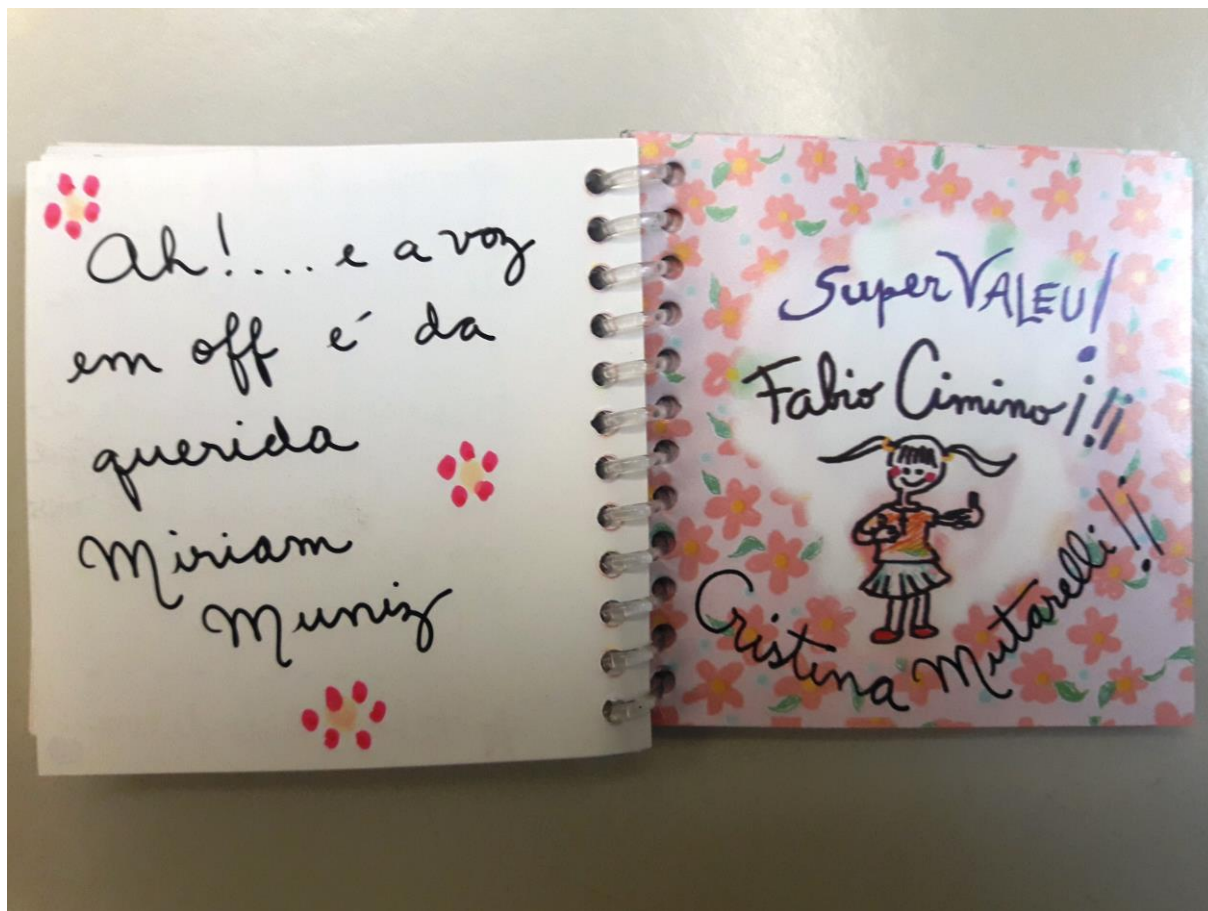 Ah!.... e a voz
em off é da
querida
Miriam
Muniz
Super VALEU!
Fabio Cimino!!!
Cristina Mutarelli!!